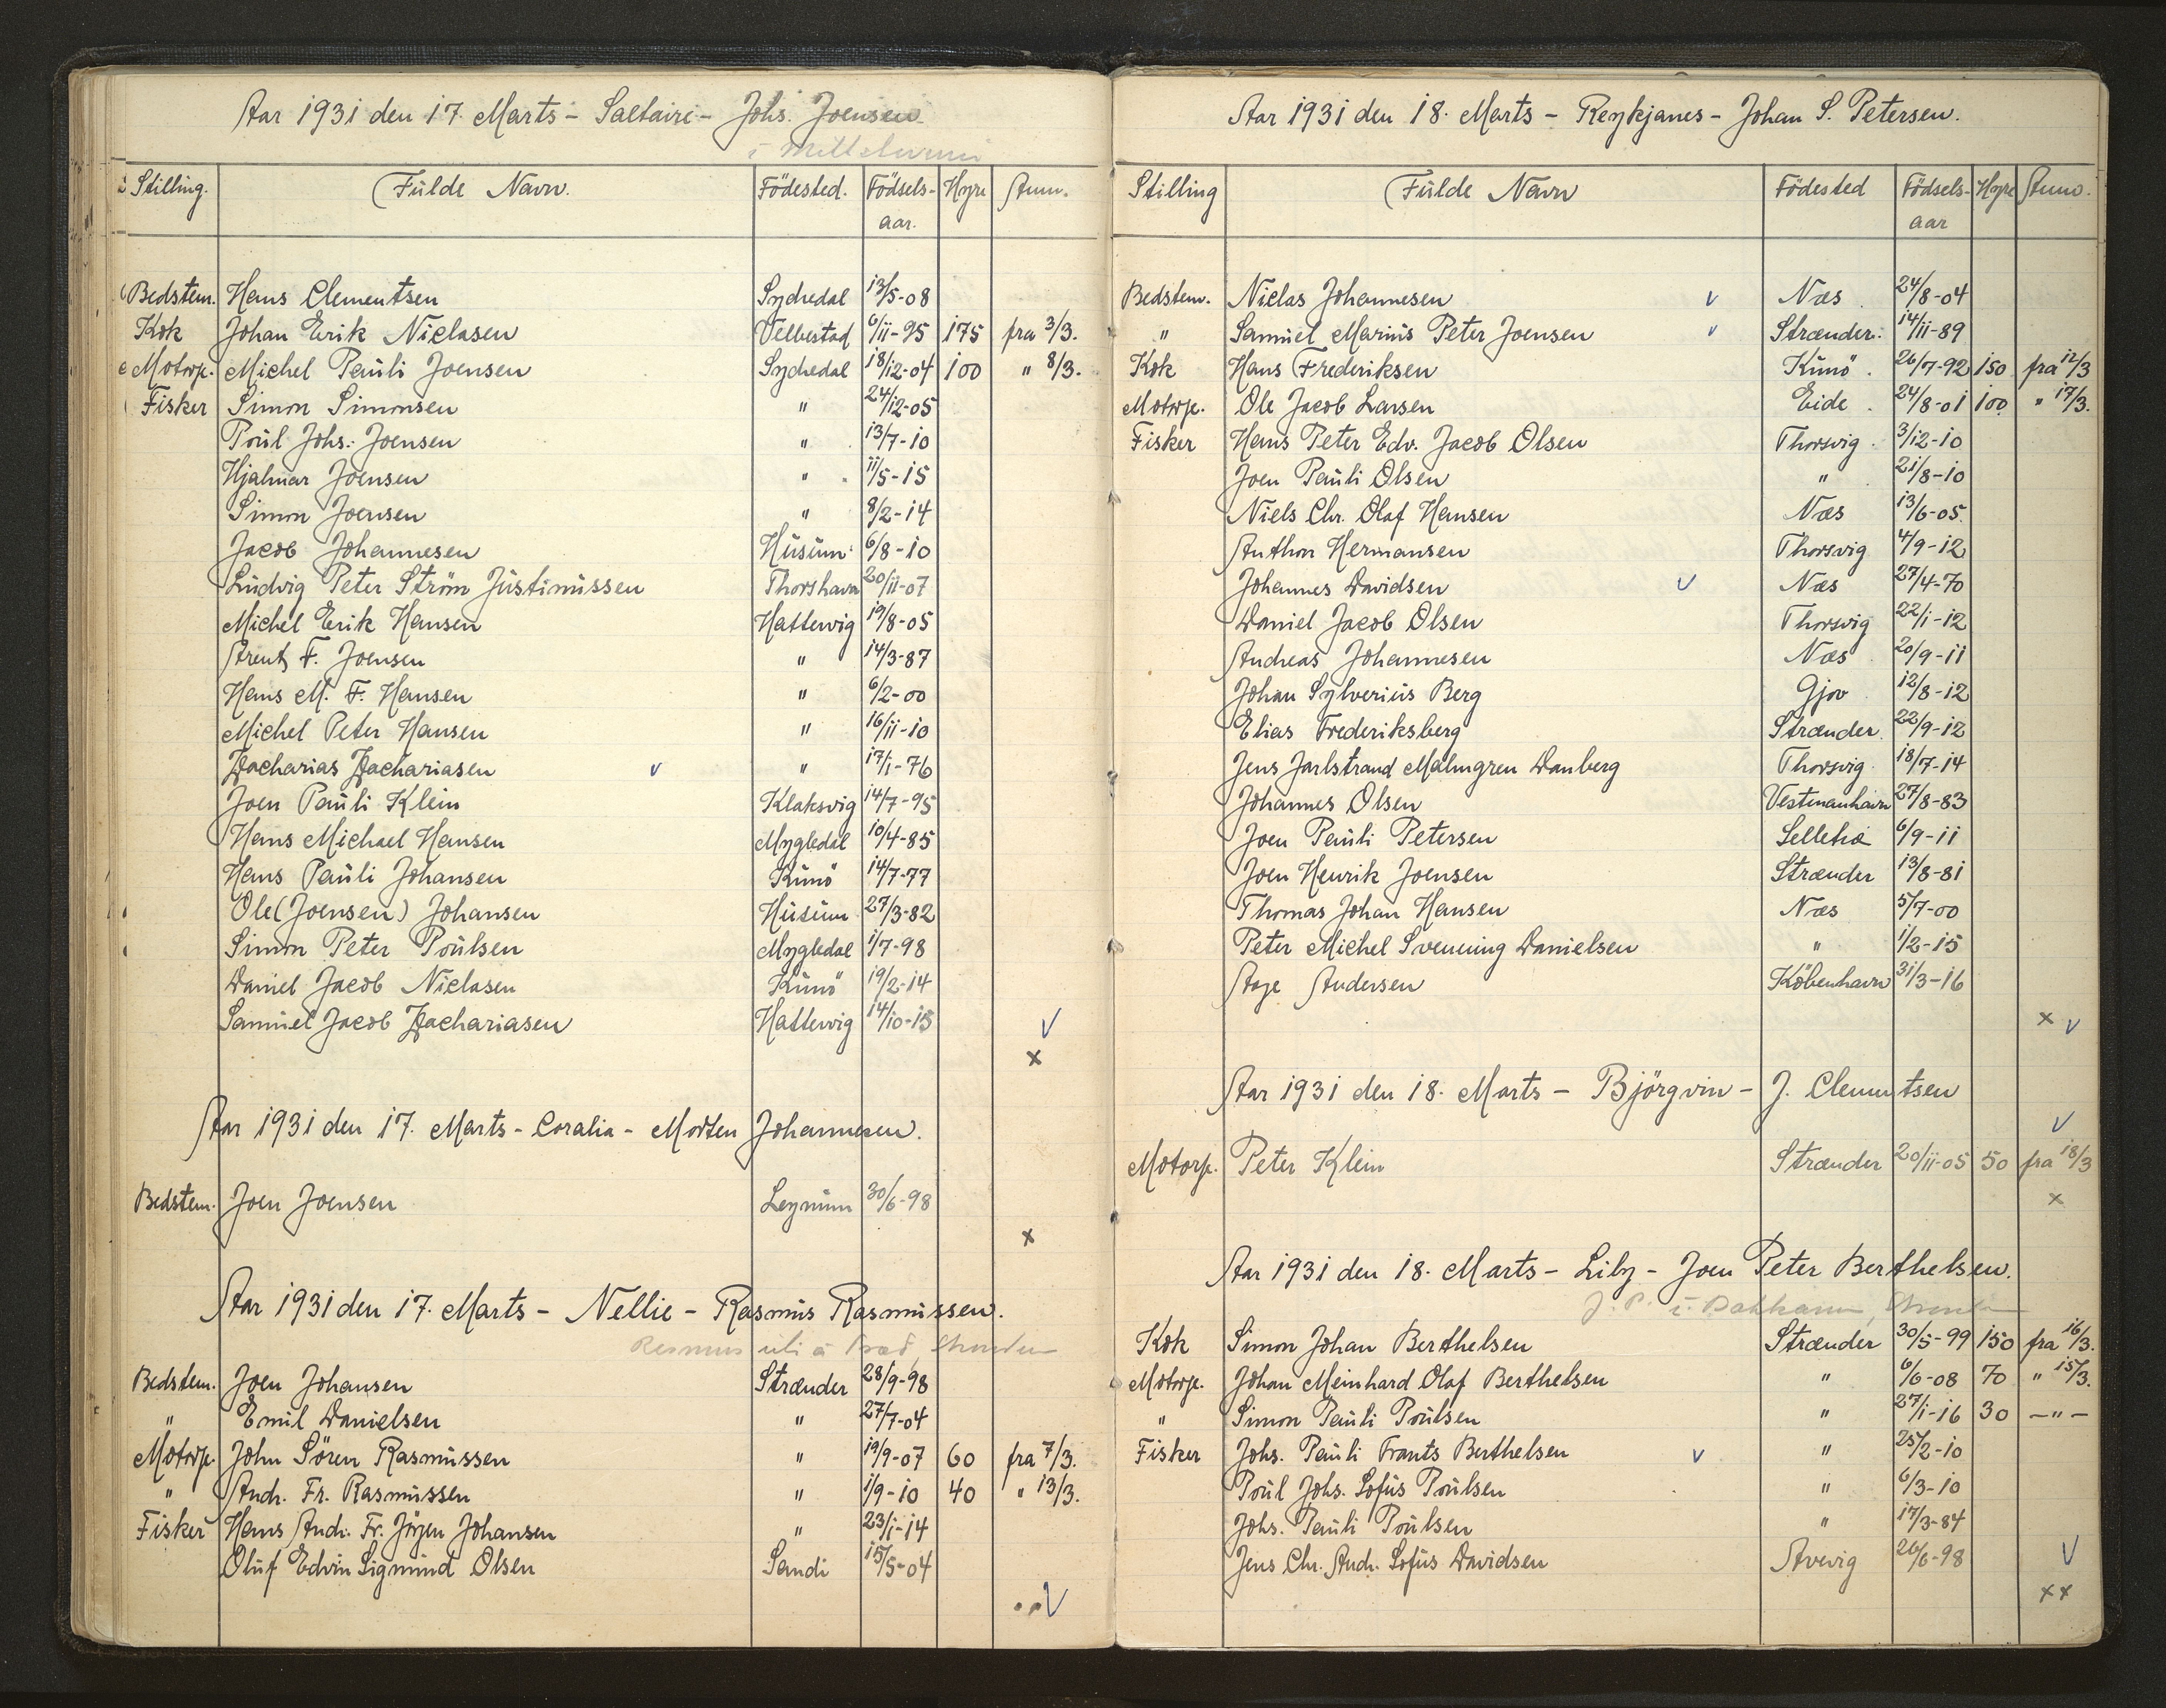 Aar 1931 den 17. Marts - Saltaire - Johs. Joensen
Stilling. Fulde Navn. Födested. Födsels- Hyre Anm.
aar.
Bedstem. Hans Clementsen Sydredal 13/5-08
Kok Johan Erik Niclasen Velbestad 6/11-95 175 fra 3/3.
Motorp. Michel Pauli Joensen Sydredal 18/12-04 100 " 8/3.
Fisker Simon Simonsen " 24/12-05
Poul Johs. Joensen " 13/7-10
Hjalmar Joensen " 11/5-15
Simon Joensen " 8/2-14
Jacob Johannesen Husum 6/8-10
Ludvig Peter Ström Justinussen Thorshavn 20/11-07
Michel Erik Hansen Hattervig 19/8-05
Arent F. Joensen " 14/3-87
Hans M. F. Hansen " 6/2-00
Michel Peter Hansen " 16/11-10
Zacharias Zachariasen v " 17/1-76
Joen Pauli Klein Klaksvig 14/7-95
Hans Michael Hansen Mygledal 10/4-85
Hans Pauli Johansen Kunö 14/7-77
Ole (Joensen) Johansen Husum 27/3-82
Simon Peter Poulsen Mygledal 1/7-98
Daniel Jacob Niclasen Kunö 19/2-14
Samuel Jacob Zachariasen Hattervig 14/10-15 v
x
Aar 1931 den 17. Marts - Coralia - Morten Johannesen.
Bedstem. Joen Joensen Leynum 30/6-98
x
Aar 1931 den 17. Marts - Nellie - Rasmus Rasmussen.
Rasmus
Bedstem. Joen Johansen Strænder 28/9-98
" Emil Danielsen " 27/7-04
Motorp. John Sören Rasmussen " 19/9-07 60 fra 7/3.
" Andr. Fr. Rasmussen " 1/9-10 40 " 13/3.
Fisker Hans Andr. Fr. Jörgen Johansen " 23/1-14
Oluf Edvin Sigmund Olsen Sandi 15/5-04
v
Aar 1931 den 18. Marts - Reykjanes - Johan S. Petersen.
Stilling Fulde Navn Födested Födsels- Hyre Anm.
aar
Bedstem. Niclas Johannesen v Næs 24/8-04
" Samuel Marius Peter Joensen v Strænder 14/11-89
Kok Hans Frederiksen Kunö 26/7-92 150 fra 12/3
Motorp. Ole Jacob Larsen Eide 24/8-01 100 " 17/3.
Fisker Hans Peter Edv. Jacob Olsen Thorsvig 3/12-10
Joen Pauli Olsen " 21/8-10
Niels Chr. Olaf Hansen Næs 13/6-05.
Anthon Hermansen Thorsvig 4/9-12
Johannes Davidsen v Næs 27/4-70
Daniel Jacob Olsen Thorsvig 22/1-12
Andreas Johannesen Næs 20/9-11
Johan Sylverius Berg Gjov 12/8-12
Elias Frederiksberg Strænder 22/9-12
Jens Jarlstrand Malmgren Danberg Thorsvig 18/7-14
Johannes Olsen Vestmanhavn 27/8-83
Joen Pauli Petersen Selletræ 6/9-11
Joen Henrik Joensen Strænder 13/8-81
Thomas Johan Hansen Næs 5/7-00
Peter Michel Svenning Danielsen " 1/2-15
Aage Andersen Köbenhavn 31/3-16
x v
Aar 1931 den 18. Marts - Björgvin - J. Clementsen
v
Motorp. Peter Klein Strænder 20/11-05 50 fra 18/3
x
Aar 1931 den 18. Marts - Lily - Joen Peter Berthelsen.
J. P.
Kok Simon Johan Berthelsen Strænder 30/5-99 150 fra 16/3.
Motorp. Johan Meinhard Olaf Berthelsen " 6/6-08 70 " 15/3.
" Simon Pauli Poulsen " 27/1-16 30 - " -
Fisker Johs. Pauli Frants Berthelsen v " 25/2-10
Poul Johs. Sofus Poulsen " 6/3-10
Johs. Pauli Poulsen " 17/3-84
Jens Chr. Andr. Sofus Davidsen Arevig 26/6-98 v
xx